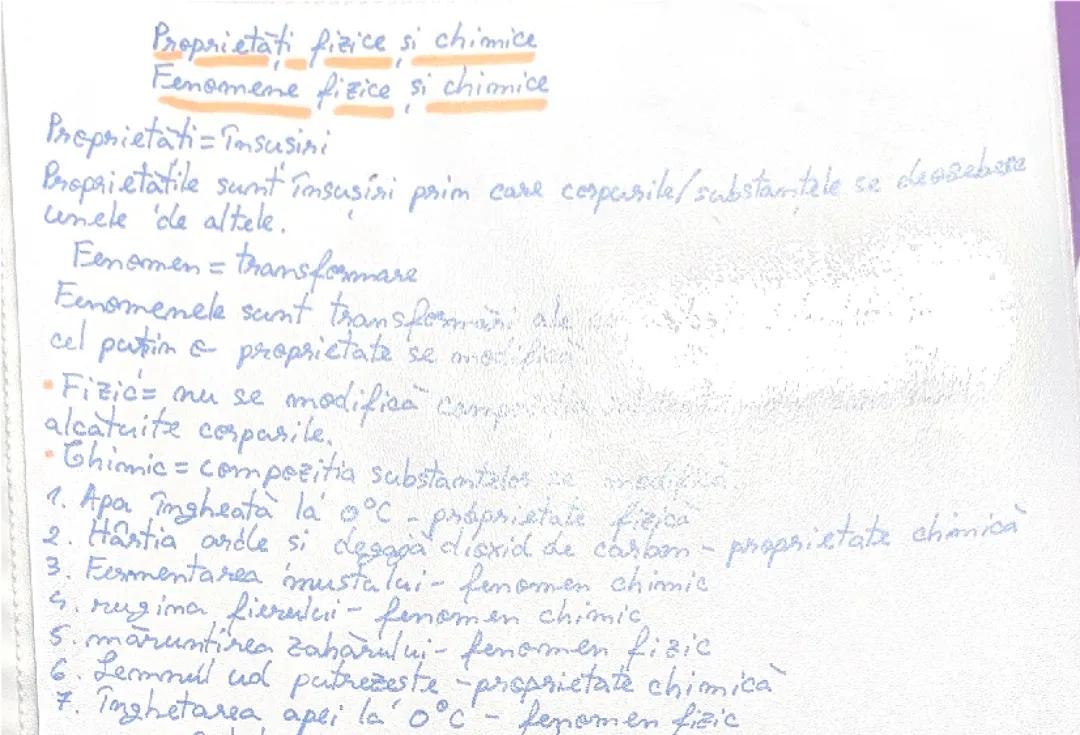 Proprietăți fizice și chimice
Fenomene fizice și chimice
Proprietăți = însușiri
Proprietățile sunt însușiri prin care corpurile/substanțele se deosebesc
unele de altele.
Fenomen = transformare
Fenomenele sunt transformări ale
cel puțin o proprietate se modifică
• Fizic = nu se modifică compoziția
alcătuite corpurile.
• Chimic = compoziția substanțelor se modifică.
1. Apa îngheață la 0°C - proprietate fizică
2. Hârtia arde și degajă dioxid de carbon - proprietate chimică
3. Fermentarea mustului - fenomen chimic
4. rugina fierului - fenomen chimic
5. mărunțirea zahărului - fenomen fizic
6. Lemnul ud putrezește - proprietate chimică
7. Înghețarea apei la 0°C - fenomen fizic